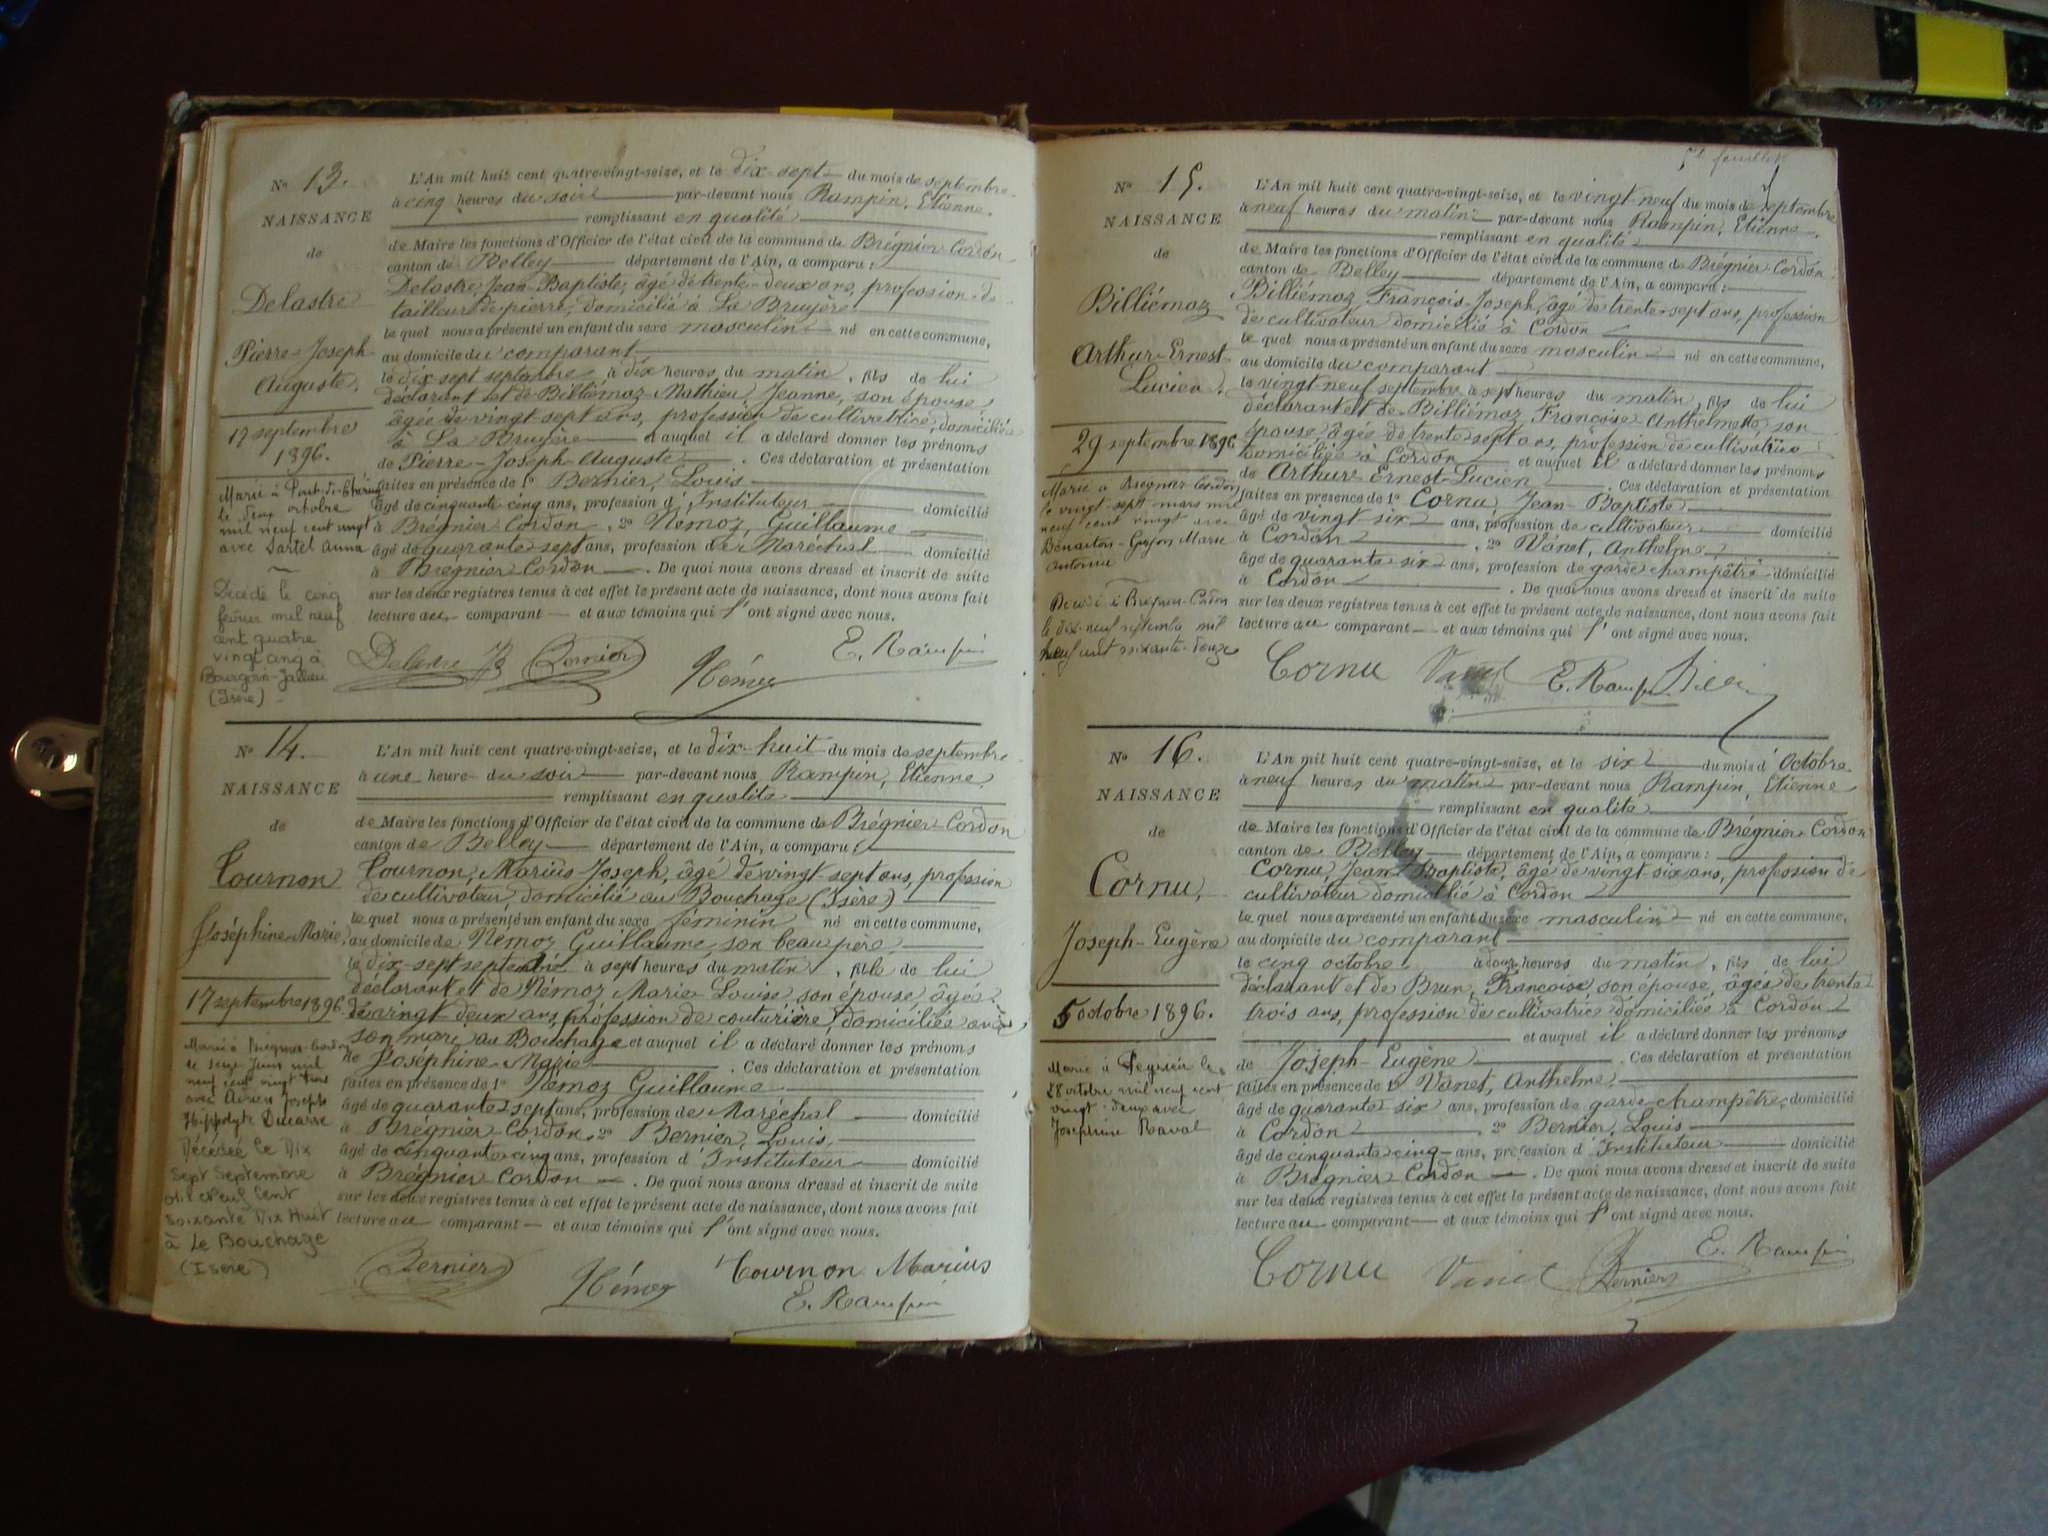 Nº 13.
NAISSANCE
de
Delastre
Pierre-Joseph
Auguste.
17 septembre
1896.
Marié à Pont-de-Chéruy
le deux octobre
mil neuf cent vingt
avec Sartel Anna
Décédé le cinq
février mil neuf
cent quatre
vingt cinq à
Bourgoin-Jallieu
(Isère).
L'An mil huit cent quatre-vingt-seize, et le dix-sept du mois de septembre
à cinq heures du soir par-devant nous Rampin, Etienne.
remplissant en qualité
de Maire les fonctions d'Officier de l'état civil de la commune de Brégnier-Cordon
canton de Belley département de l'Ain, a comparu :
Delastre, Jean-Baptiste, âgé de trente-deux ans, profession de
tailleur de pierre, domicilié à La Bruyère
le quel nous a présenté un enfant du sexe masculin né en cette commune,
au domicile du comparant
le dix-sept septembre à dix heures du matin, fils de lui
déclarant et de Billiémaz Mathieu, Jeanne, son épouse
âgée de vingt-sept ans, profession de cultivatrice, domiciliée
à La Bruyère et auquel il a déclaré donner les prénoms
de Pierre-Joseph Auguste. Ces déclaration et présentation
faites en présence de 1º Bernier, Louis
âgé de cinquante cinq ans, profession d'Instituteur domicilié
à Brégnier-Cordon, 2º Némoz, Guillaume
âgé de quarante sept ans, profession de Maréchal domicilié
à Brégnier-Cordon. De quoi nous avons dressé et inscrit de suite
sur les deux registres tenus à cet effet le présent acte de naissance, dont nous avons fait
lecture au comparant et aux témoins qui l'ont signé avec nous.
Delastre JB Bernier Némoz E. Rampin
Nº 14.
NAISSANCE
de
Tournon
Joséphine-Marie.
17 septembre 1896.
Marié à Brégnier-Cordon
le seize Juin mil
neuf cent vingt trois
avec Adrien Joseph
Hippolyte Ducarre
Décédée le Dix
Sept Septembre
Mil Neuf Cent
Soixante Dix Huit
à Le Bouchage
(Isère)
L'An mil huit cent quatre-vingt-seize, et le dix-huit du mois de septembre
à une heure du soir par-devant nous Rampin, Etienne.
remplissant en qualité
de Maire les fonctions d'Officier de l'état civil de la commune de Brégnier-Cordon
canton de Belley département de l'Ain, a comparu :
Tournon, Marius Joseph, âgé de vingt-sept ans, profession
de cultivateur, domicilié au Bouchage (Isère)
le quel nous a présenté un enfant du sexe féminin né en cette commune,
au domicile de Némoz Guillaume, son beau père
le dix-sept septembre à sept heures du matin, fille de lui
déclarant et de Némoz Marie-Louise son épouse, âgée
de vingt-deux ans, profession de couturière, domiciliée avec
son mari au Bouchage et auquel il a déclaré donner les prénoms
de Joséphine-Marie. Ces déclaration et présentation
faites en présence de 1º Némoz Guillaume
âgé de quarante sept ans, profession de Maréchal domicilié
à Brégnier-Cordon, 2º Bernier, Louis,
âgé de cinquante-cinq ans, profession d'Instituteur domicilié
à Brégnier-Cordon. De quoi nous avons dressé et inscrit de suite
sur les deux registres tenus à cet effet le présent acte de naissance, dont nous avons fait
lecture au comparant et aux témoins qui l'ont signé avec nous.
Bernier Némoz Tournon Marius
E. Rampin
feuillet
Nº 15.
NAISSANCE
de
Billiémaz
Arthur-Ernest
Lucien.
29 septembre 1896
Marié à Brégnier-Cordon
le vingt-sept mars mil
neuf cent vingt avec
Marie
Antonia
Décédé à Brégnier-Cordon
le dix-neuf septembre mil
neuf cent soixante-douze
L'An mil huit cent quatre-vingt-seize, et le vingt-neuf du mois de septembre
à neuf heures du matin par-devant nous Rampin, Etienne.
remplissant en qualité
de Maire les fonctions d'Officier de l'état civil de la commune de Brégnier-Cordon
canton de Belley département de l'Ain, a comparu :
Billiémaz, François-Joseph, âgé de trente-sept ans, profession
de cultivateur domicilié à Cordon
le quel nous a présenté un enfant du sexe masculin né en cette commune,
au domicile du comparant
le vingt-neuf septembre à sept heures du matin, fils de lui
déclarant et de Billiémaz Françoise Anthelmette son
épouse, âgée de trente sept ans, profession de cultivatrice
domiciliée à Cordon et auquel il a déclaré donner les prénoms
de Arthur-Ernest-Lucien. Ces déclaration et présentation
faites en présence de 1º Cornu, Jean-Baptiste
âgé de vingt-six ans, profession de cultivateur domicilié
à Cordon, 2º Vanet, Anthelme
âgé de quarante six ans, profession de garde champêtre domicilié
à Cordon. De quoi nous avons dressé et inscrit de suite
sur les deux registres tenus à cet effet le présent acte de naissance, dont nous avons fait
lecture au comparant et aux témoins qui l'ont signé avec nous.
Cornu Vanet E. Rampin
Nº 16.
NAISSANCE
de
Cornu,
Joseph-Eugène
5 octobre 1896.
Marié à Peyrieu le
28 octobre mil neuf cent
vingt-deux avec
Joséphine Ravat
L'An mil huit cent quatre-vingt-seize, et le six du mois d'Octobre
à neuf heures du matin par-devant nous Rampin, Etienne
remplissant en qualité
de Maire les fonctions d'Officier de l'état civil de la commune de Brégnier-Cordon
canton de Belley département de l'Ain, a comparu :
Cornu, Jean-Baptiste, âgé de vingt six ans, profession de
cultivateur domicilié à Cordon
le quel nous a présenté un enfant du sexe masculin né en cette commune,
au domicile du comparant
le cinq octobre à douze heures du matin, fils de lui
déclarant et de Brun, Françoise son épouse, âgée de trente
trois ans, profession de cultivatrice domiciliée à Cordon
et auquel il a déclaré donner les prénoms
de Joseph-Eugène. Ces déclaration et présentation
faites en présence de 1º Vanet, Anthelme
âgé de quarante six ans, profession de garde-champêtre domicilié
à Cordon, 2º Bernier, Louis
âgé de cinquante-cinq ans, profession d'Instituteur domicilié
à Brégnier-Cordon. De quoi nous avons dressé et inscrit de suite
sur les deux registres tenus à cet effet le présent acte de naissance, dont nous avons fait
lecture au comparant et aux témoins qui l'ont signé avec nous.
Cornu Vanet Bernier E. Rampin